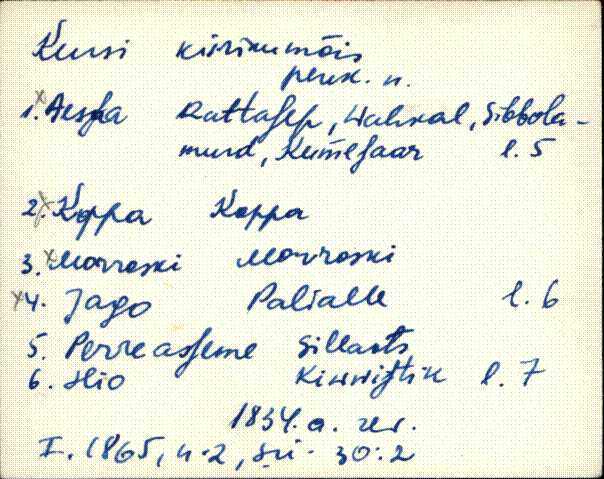 Kursi kirikumõis
perek. n.
1. Aessa Rattasep, Wahral, Sibbola-
murd, Kuresaar l. 5
2. Koppa Koppa
3. Morroski Morroski
4. Jago Palialle l. 6
5. Perreasseme Sillaots
6. Hio Kiwwistik l. 7
1834. a. rev.
I. 1865, n. 2, sü. 30:2